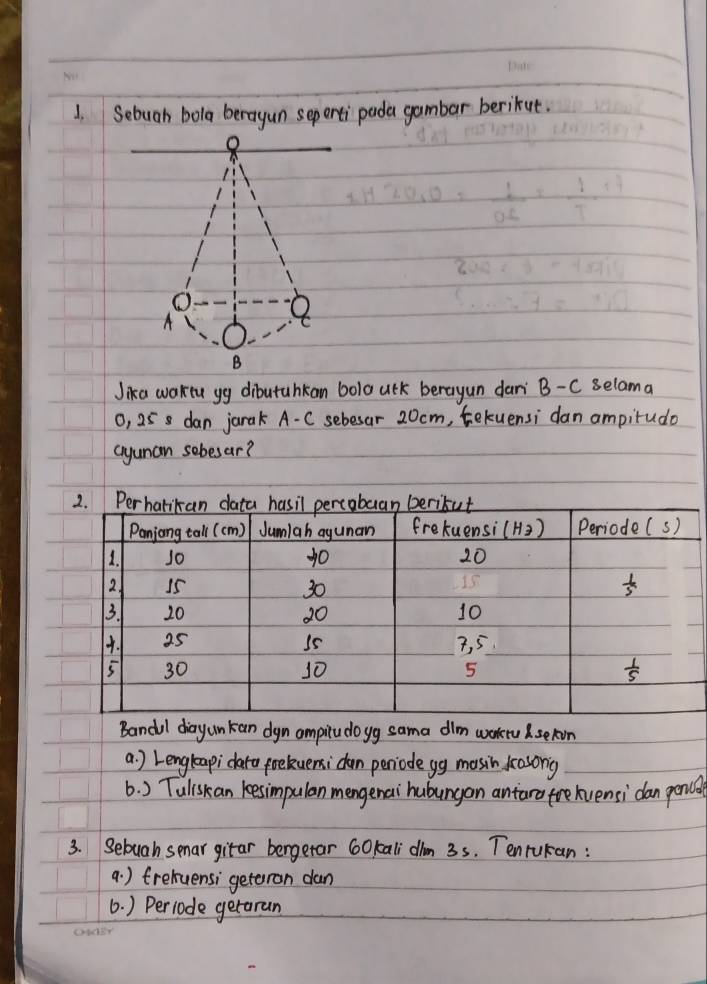 No
Date
1. Sebuah bola berayun seperti pada gambar berikut.
A
C
B
Jika waktu yg dibutuhkan bola utk berayun dari B-C selama
0,25 s dan jarak A-C sebesar 20cm, frekuensi dan ampitudo
ayunan sebesar?
2. Perhatikan data hasil percobaan berikut
Panjang tali (cm) Jumlah ayunan frekuensi (Hz) Periode (s)
1. 10 40 20
2 15 30 15 1/5
3. 20 20 10
4. 25 15 7,5.
5 30 10 5 1/5
Bandul diayunkan dgn ampitudo yg sama dlm waktu 2 sekon
a.) Lengkapi data frekuensi dan periode yg masih kosong
b.) Tuliskan kesimpulan mengenai hubungan antara frekuensi dan periode
3. Sebuah senar gitar bergetar 60 kali dlm 3s. Tentukan:
a.) frekuensi getaran dan
b.) Periode getaran
OKEY